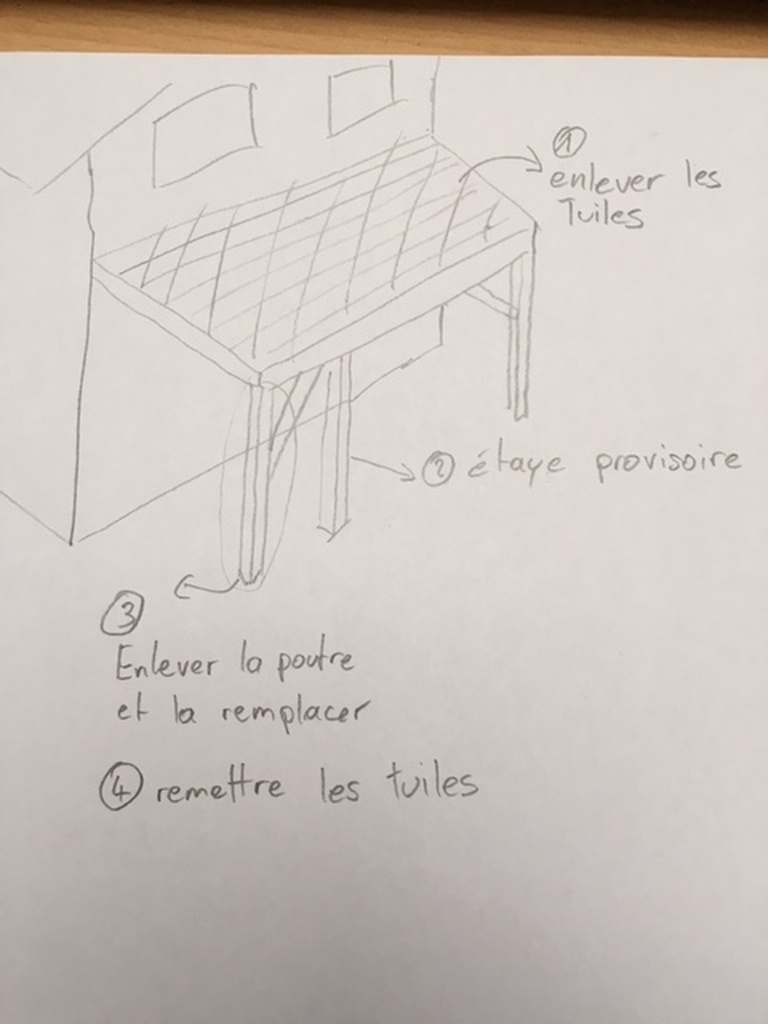 1
enlever les
Tuiles
2 étaye provisoire
3
Enlever la poutre
et la remplacer
4 remettre les tuiles